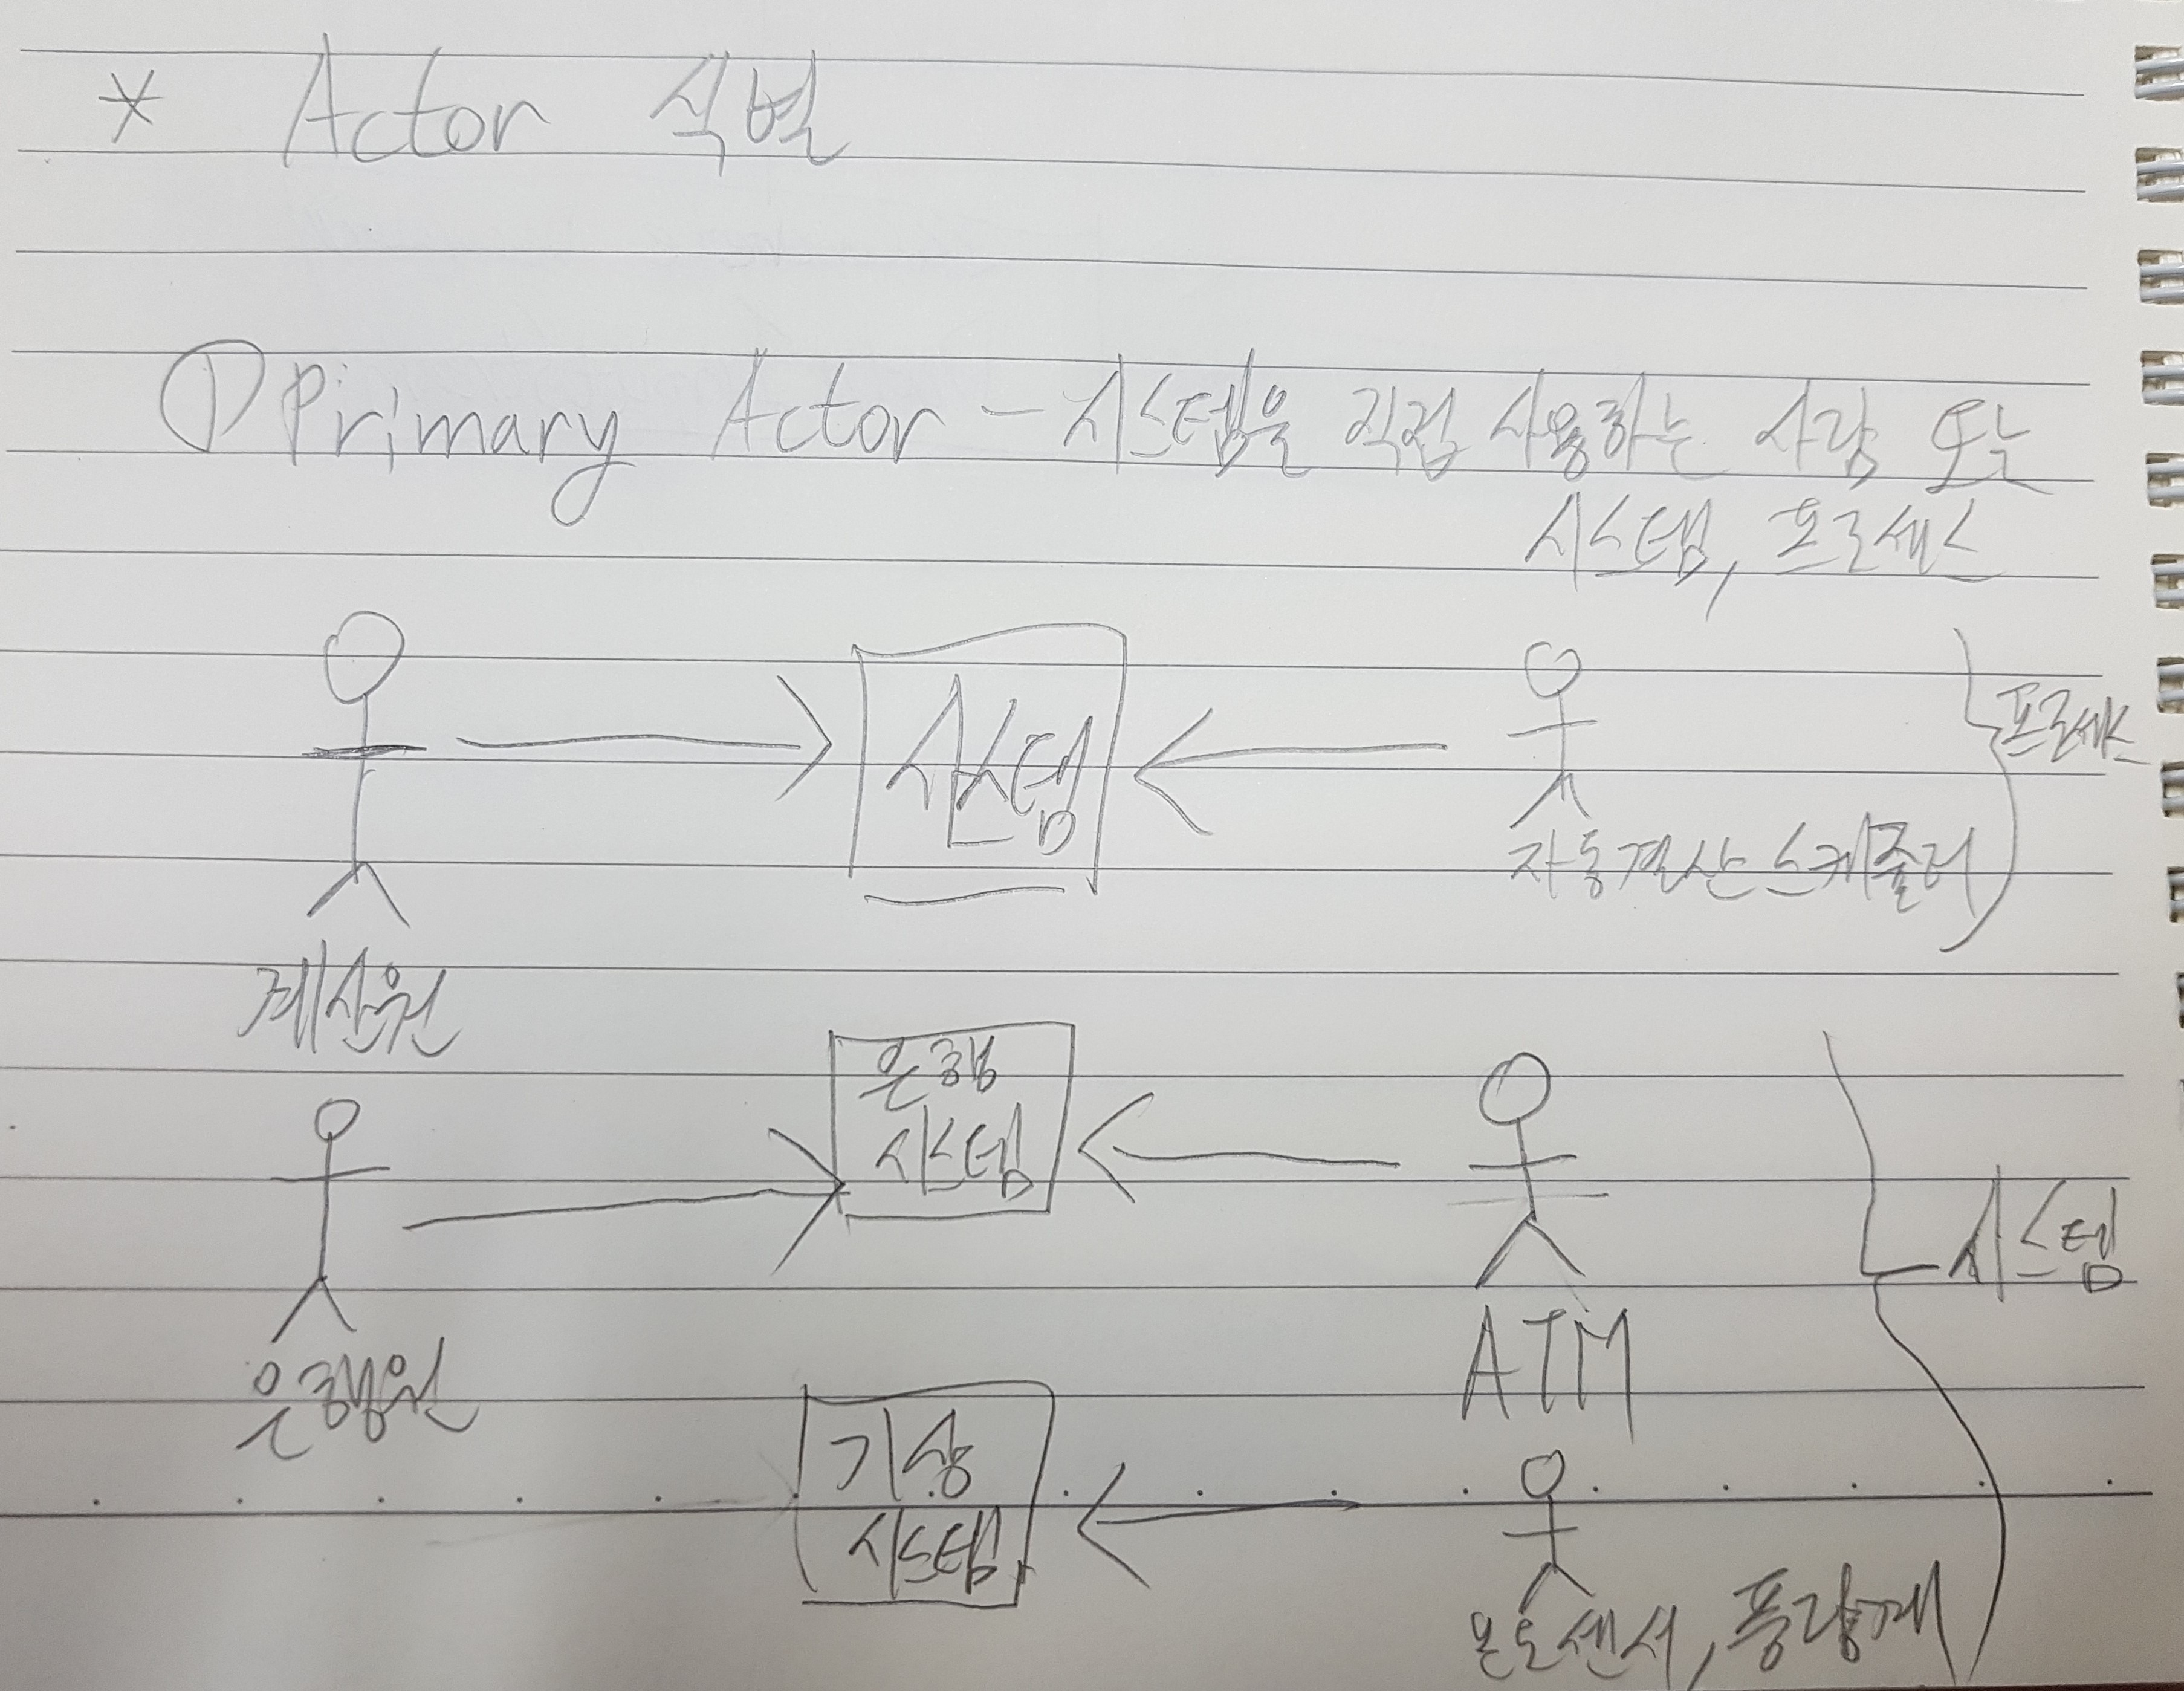 * Actor 식별
① Primary Actor - 시스템을 직접 사용하는 사람 또는
시스템, 프로세스
시스템
프로세스
자동결산 스케줄러
계산원
은행
시스템
시스템
ATM
은행원
기상
시스템
온도센서, 풍향계